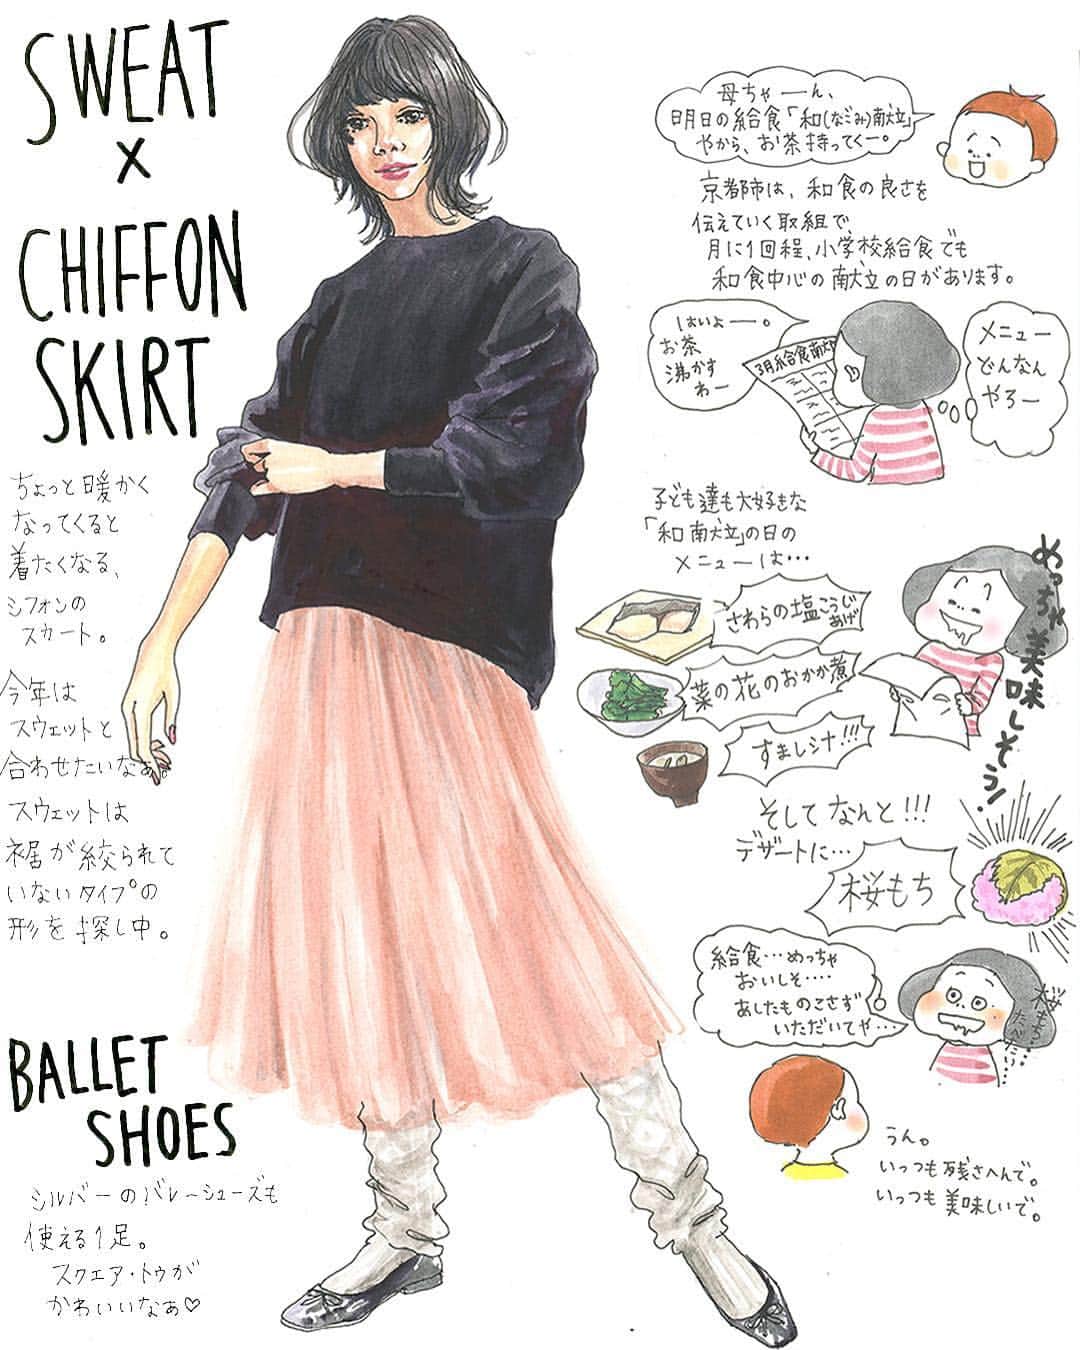 SWEAT
×
CHIFFON
SKIRT
ちょっと暖かく
なってくると
着たくなる、
シフォンの
スカート。
今年は
スウェットと
合わせたいなぁ。
スウェットは
裾が絞られて
いないタイプの
形を探し中。
BALLET
SHOES
シルバーのバレーシューズも
使える1足。
スクエア・トゥが
かわいいなぁ♡
母ちゃーん、
明日の給食「和(なごみ)献立」
やから、お茶持ってくー。
京都市は、和食の良さを
伝えていく取組で、
月に1回程、小学校給食でも
和食中心の献立の日があります。
はいよー。
お茶
沸かす
わー
3月給食献立
メニュー
どんなん
やろー
子ども達も大好きな
「和献立」の日の
メニューは…
さわらの塩こうじ
あげ
菜の花のおかか煮
すまし汁!!!
めっちゃ美味しそう!
そしてなんと!!!
デザートに…
桜もち
給食…めっちゃ
おいしそ….
あしたものこさず
いただいてや…
桜もち
たべたい…
うん。
いっつも残さへんで。
いっつも美味しいで。